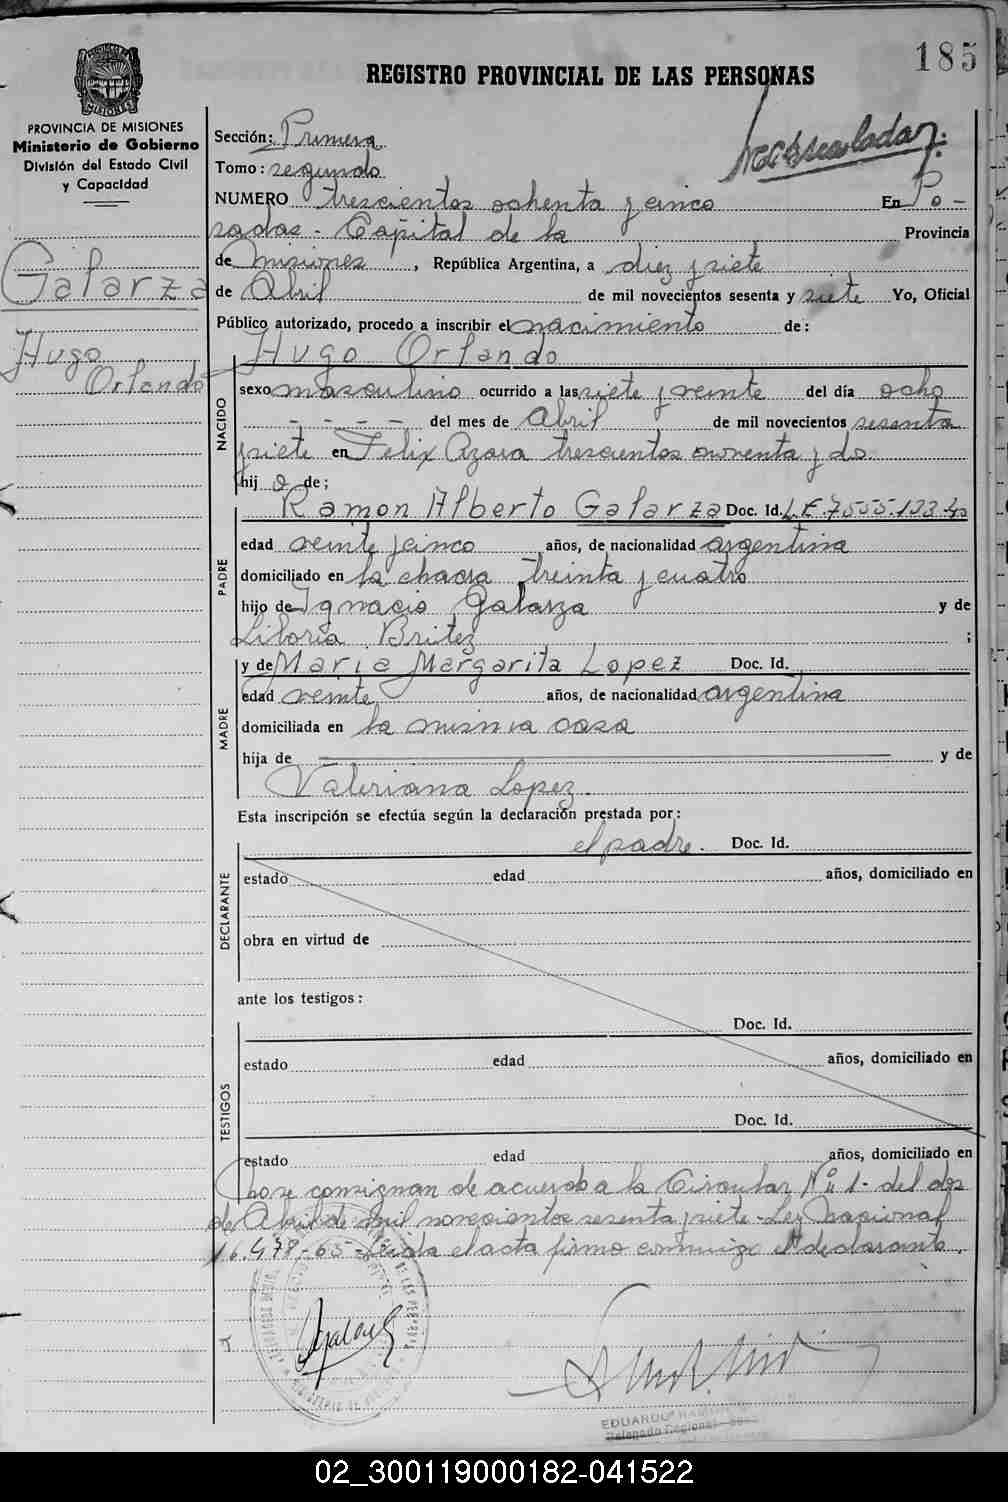 185
REGISTRO PROVINCIAL DE LAS PERSONAS
MISIONES
PROVINCIA DE MISIONES
Ministerio de Gobierno
División del Estado Civil
y Capacidad
Galarza
Hugo
Orlando
Sección: Primera
Tomo: segundo
NUMERO trescientos ochenta y cinco En Po-
sadas - Capital de la Provincia
de Misiones, República Argentina, a diez y siete
de Abril de mil novecientos sesenta y siete Yo, Oficial
Público autorizado, procedo a inscribir el nacimiento de:
Hugo Orlando
NACIDO
sexo masculino ocurrido a las siete y veinte del día ocho
- - - - del mes de Abril de mil novecientos sesenta
y siete en Felix Azara trescientos noventa y dos
hijo de;
PADRE
Ramon Alberto Galarza Doc. Id. L.E. 7555.133
edad veinte y cinco años, de nacionalidad argentina
domiciliado en la chacra treinta y cuatro
hijo de Ignacio Galarza y de
Liboria Britez ;
MADRE
y de Maria Margarita Lopez Doc. Id.
edad veinte años, de nacionalidad argentina
domiciliada en la misma casa
hija de y de
Valeriana Lopez.
Esta inscripción se efectúa según la declaración prestada por:
el padre. Doc. Id.
DECLARANTE
estado edad años, domiciliado en
obra en virtud de
ante los testigos:
TESTIGOS
Doc. Id.
estado edad años, domiciliado en
Doc. Id.
estado edad años, domiciliado en
no se consignan de acuerdo a la Circular Nº 1- del dos
de Abril de mil novecientos sesenta y siete - Ley Nacional
16.478-65- Leída el acta firmo conmigo el declarante.
EDUARDO RAMON
Delegado Regional
02_300119000182-041522